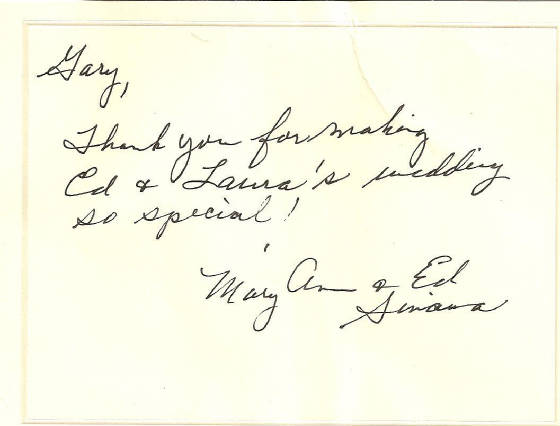 Gary,
Thank you for making
Ed & Laura's wedding
so special!
Mary Ann & Ed